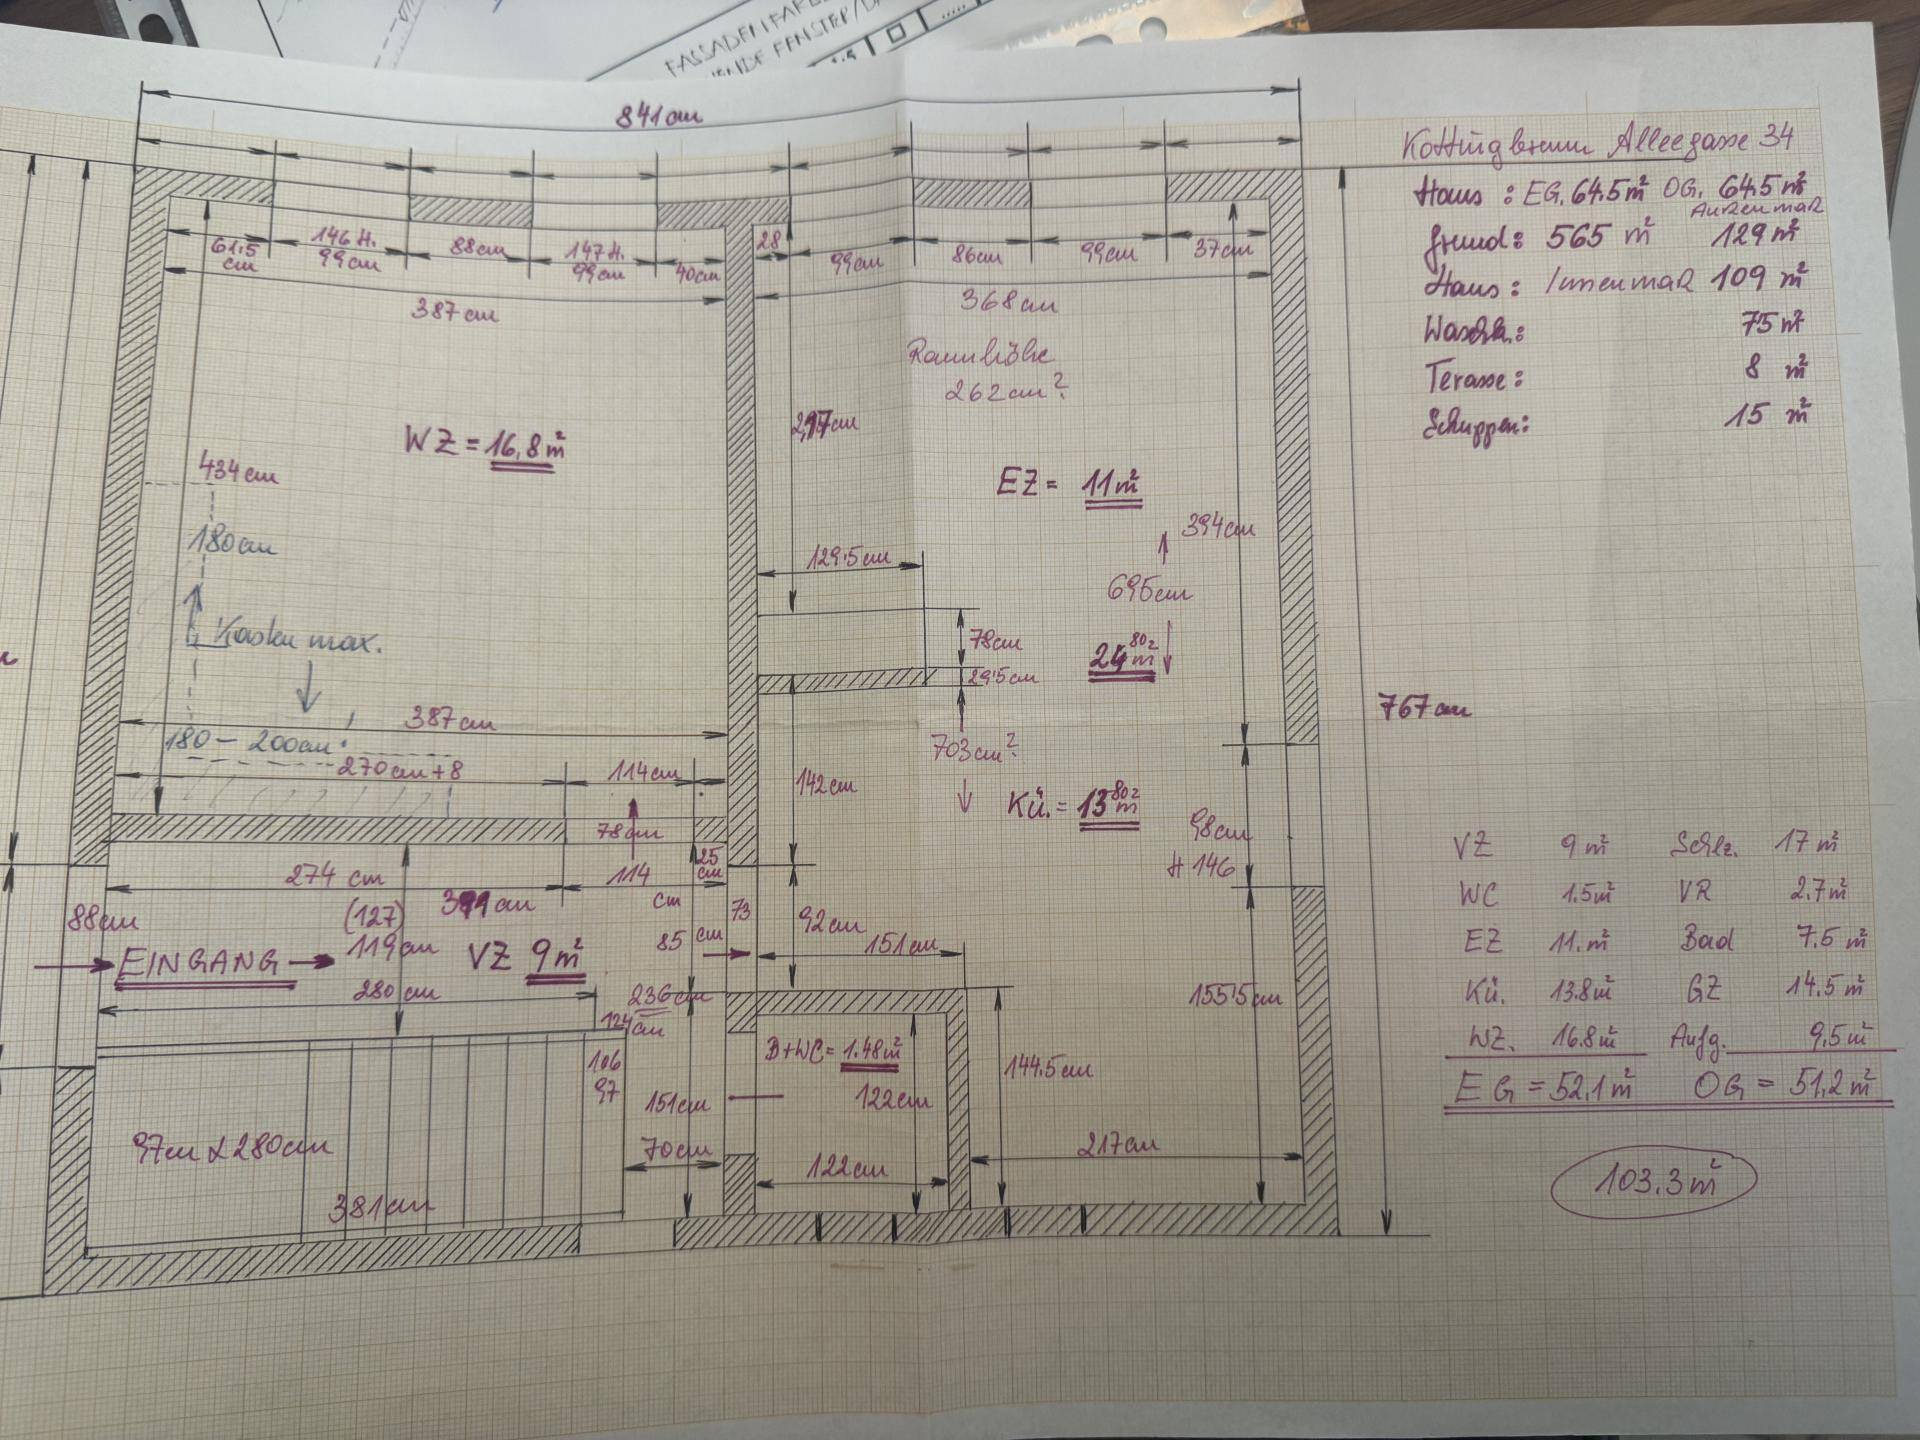 FASSADEN FARBE
FENSTER/
841cm
Kottingbrunn Alleegasse 34
Haus: EG. 64.5m² OG. 64.5m²
Außenmaß
Grund: 565 m² 129 m²
Haus: Innenmaß 109 m²
Waschk.: 75 m²
Terasse: 8 m²
Schuppen: 15 m²
61.5 cm
146 H.
99cm
88cm
147 H.
99cm
40cm
28
99cm
86cm
99cm
37cm
387cm
368cm
Raumhöhe
262cm?
WZ = 16,8m²
EZ = 11m²
434cm
180cm
394cm
129.5cm
695cm
Kasten max.
78cm
24 80² m²
29.5cm
387cm
703cm?
767cm
180 – 200cm
270cm+8
114cm
142cm
Kü. = 13 80² m²
78cm
98cm
H 146
274 cm
114 cm
25 cm
73
88cm
(127)
119cm
85 cm
92cm
151cm
EINGANG
VZ 9m²
280cm
236cm
124cm
155.5cm
B+WC = 1.48m²
106
97
151cm
122cm
144.5cm
97cm x 280cm
70cm
122cm
217cm
381cm
VZ 9m² Schlz. 17m²
WC 1.5m² VR 2.7m²
EZ 11.m² Bad 7.5m²
Kü. 13.8m² GZ 14.5m²
WZ. 16.8m² Aufg. 9,5m²
EG = 52,1m² OG = 51,2m²
103.3m²